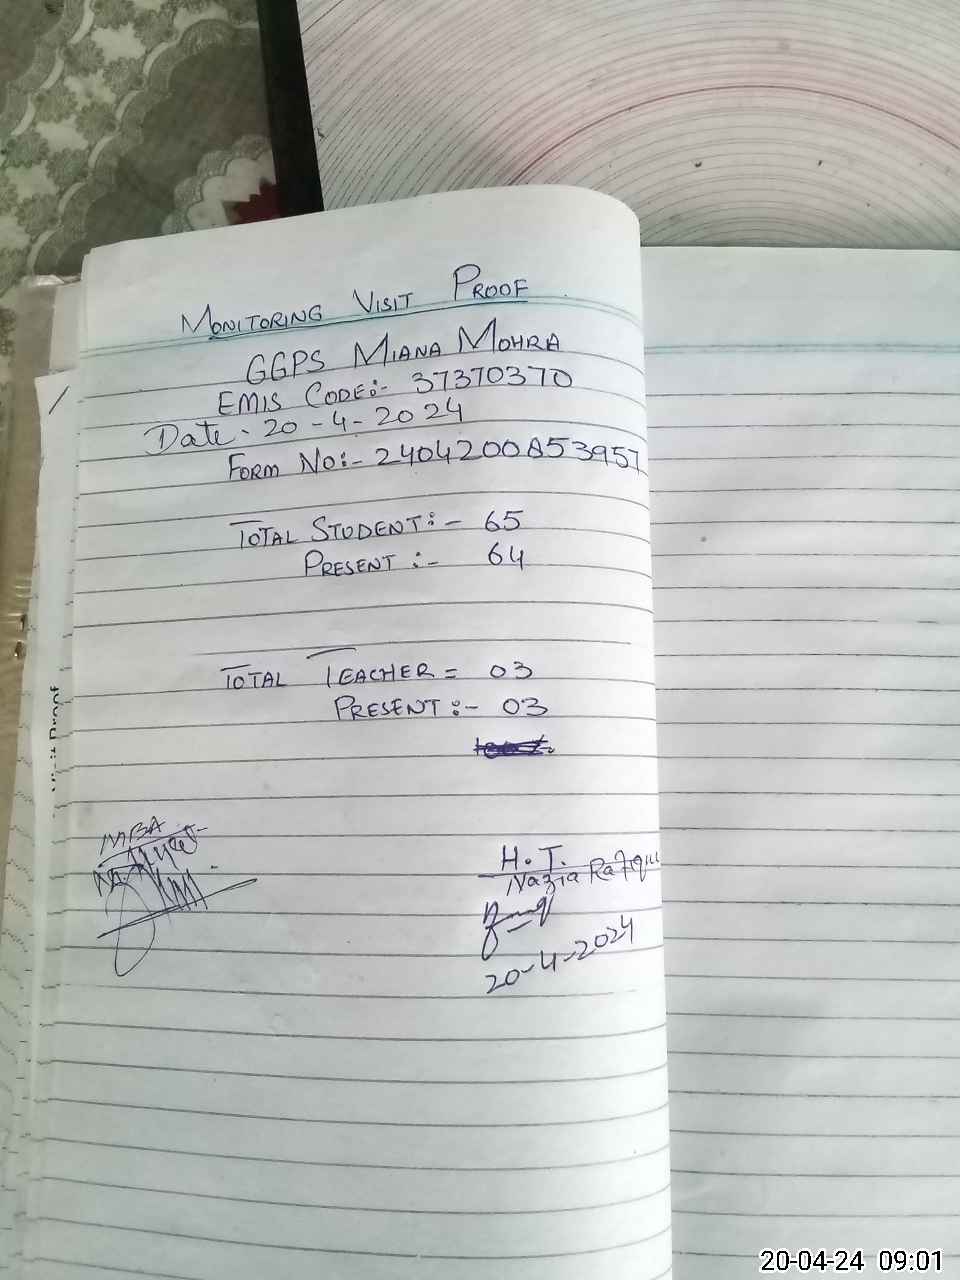 MONITORING VISIT PROOF
GGPS MIANA MOHRA
EMIS CODE:- 37370370
Date - 20-4-2024
FORM NO:- 2404200853957
TOTAL STUDENT:- 65
PRESENT :- 64
TOTAL TEACHER = 03
PRESENT :- 03
MBA
H.T.
Nazia Rafique
20-4-2024
Visit Proof
20-04-24 09:01